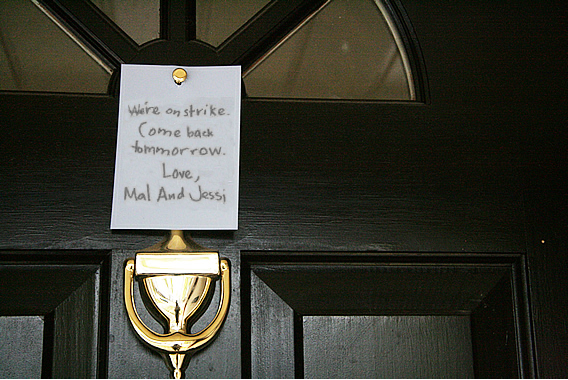 We're on strike.
Come back
tommorrow.
Love,
Mal And Jessi